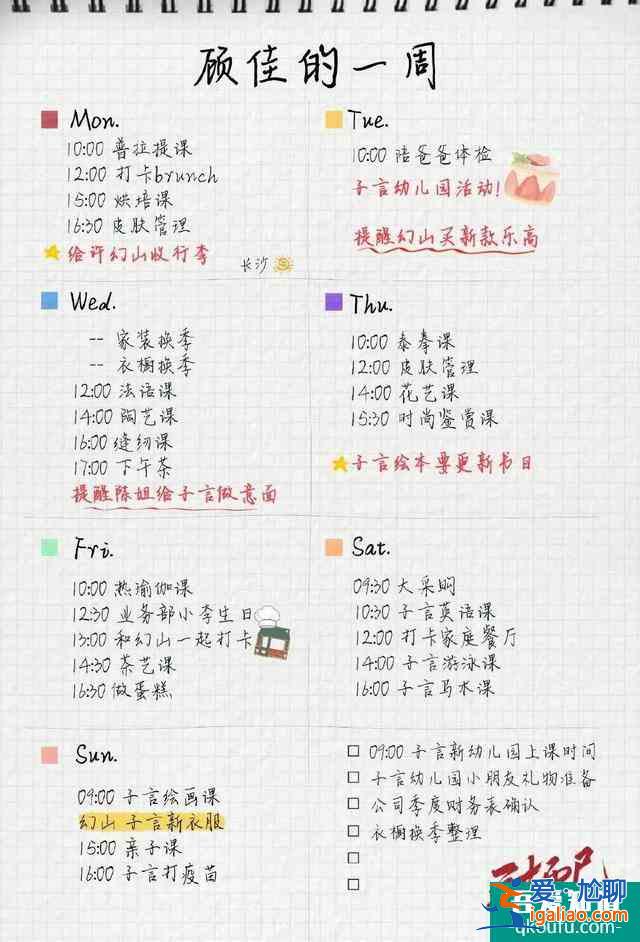 顾佳的一周
Mon.
10:00 普拉提课
12:00 打卡brunch
15:00 烘培课
16:30 皮肤管理
给许幻山收行李
长沙
Tue.
10:00 陪爸爸体检
子言幼儿园活动!
提醒幻山买新款乐高
Wed.
-- 家装换季
-- 衣橱换季
12:00 法语课
14:00 陶艺课
16:00 缝纫课
17:00 下午茶
提醒陈姐给子言做意面
Thu.
10:00 泰拳课
12:00 皮肤管理
14:00 花艺课
15:30 时尚鉴赏课
子言绘本要更新书目
Fri.
10:00 热瑜伽课
12:30 业务部小李生日
13:00 和幻山一起打卡
14:30 茶艺课
16:30 做蛋糕
Sat.
09:30 大采购
10:30 子言英语课
12:00 打卡家庭餐厅
14:00 子言游泳课
16:00 子言马术课
Sun.
09:00 子言绘画课
幻山 子言新衣服
15:00 亲子课
16:00 子言打疫苗
09:00 子言新幼儿园上课时间
子言幼儿园小朋友礼物准备
公司季度财务表确认
衣橱换季整理
爱尬聊
igaliao.com
qkoufu.com